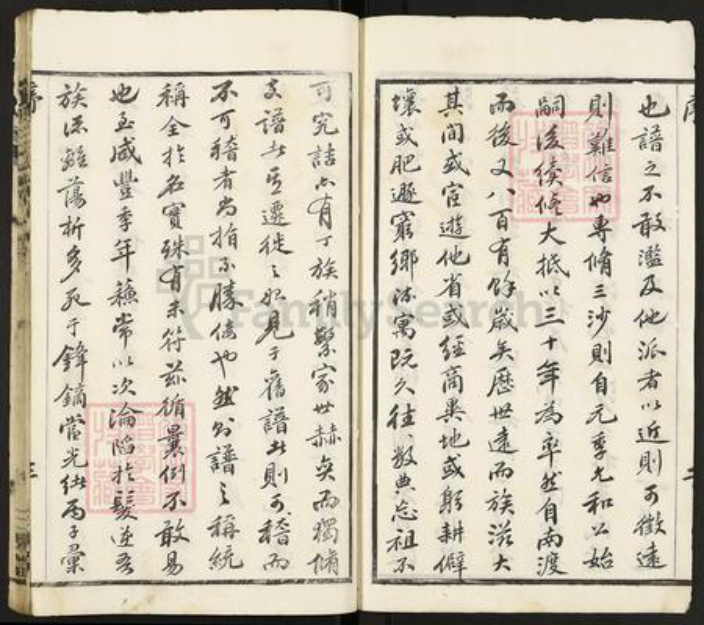 也譜之不敢濫及他派者以近則可徵遠
則難信也專脩三沙則自元季允和公始
嗣後續脩大抵以三十年為率然自南渡
而後又八百有餘歲矣歷世遠而族滋大
其間或宦遊他省或經商異地或躬耕僻
壤或肥遯窮鄉流寓既久往〻数典忘祖不
可究詰亦有丁族稍繁家世赫奕而獨脩
支譜者其遷徙之始見于舊譜者則可稽而
不可稽者尚指不勝僂也然則譜之稱統
稱全於名實殊有未符茲循曩例不敢易
也至咸豐季年蘇常以次淪陷於髮逆吾
族流離蕩析多死于鋒鏑嘗光緒丙子彙
序
二
序
三
FamilySearch